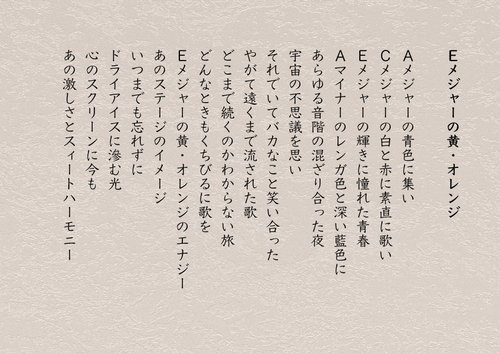 Eメジャーの黄・オレンジ
Aメジャーの青色に集い
Cメジャーの白と赤に素直に歌い
Eメジャーの輝きに憧れた青春
Aマイナーのレンガ色と深い藍色に
あらゆる音階の混ざり合った夜
宇宙の不思議を思い
それでいてバカなこと笑い合った
やがて遠くまで流された歌
どこまで続くのかわからない旅
どんなときもくちびるに歌を
Eメジャーの黄・オレンジのエナジー
あのステージのイメージ
いつまでも忘れずに
ドライアイスに滲む光
心のスクリーンに今も
あの激しさとスィートハーモニー